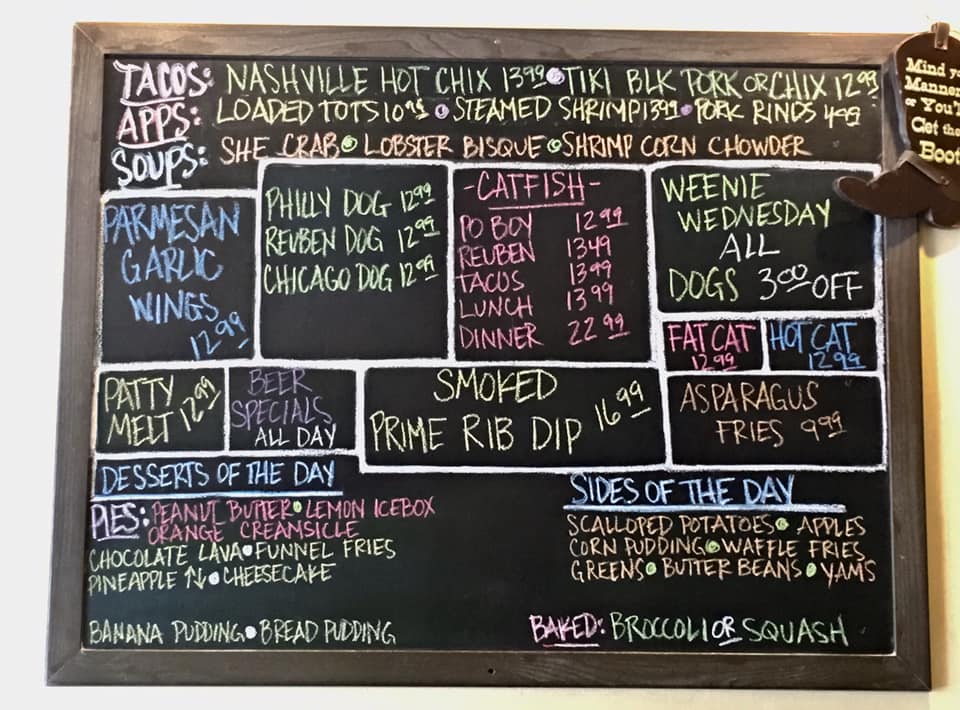 TACOS: NASHVILLE HOT CHIX 13.99 • TIKI BLK PORK OR CHIX 12.99
APPS: LOADED TOTS 10.95 • STEAMED SHRIMP 13.99 • PORK RINDS 4.99
SOUPS: SHE CRAB • LOBSTER BISQUE • SHRIMP CORN CHOWDER
PARMESAN
GARLIC
WINGS
12.99
PHILLY DOG 12.99
REUBEN DOG 12.99
CHICAGO DOG 12.99
-CATFISH-
PO BOY 12.99
REUBEN 13.49
TACOS 13.99
LUNCH 13.99
DINNER 22.99
WEENIE
WEDNESDAY
ALL
DOGS 3.00 OFF
FAT CAT
12.99
HOT CAT
12.99
PATTY
MELT 12.99
BEER
SPECIALS
ALL DAY
SMOKED
PRIME RIB DIP 16.99
ASPARAGUS
FRIES 9.99
DESSERTS OF THE DAY
PIES: PEANUT BUTTER • LEMON ICEBOX
ORANGE CREAMSICLE
CHOCOLATE LAVA • FUNNEL FRIES
PINEAPPLE ↑↓ • CHEESECAKE
BANANA PUDDING • BREAD PUDDING
SIDES OF THE DAY
SCALLOPED POTATOES • APPLES
CORN PUDDING • WAFFLE FRIES
GREENS • BUTTER BEANS • YAMS
BAKED: BROCCOLI OR SQUASH
Mind
Manner
or You'l
Get the
Boot